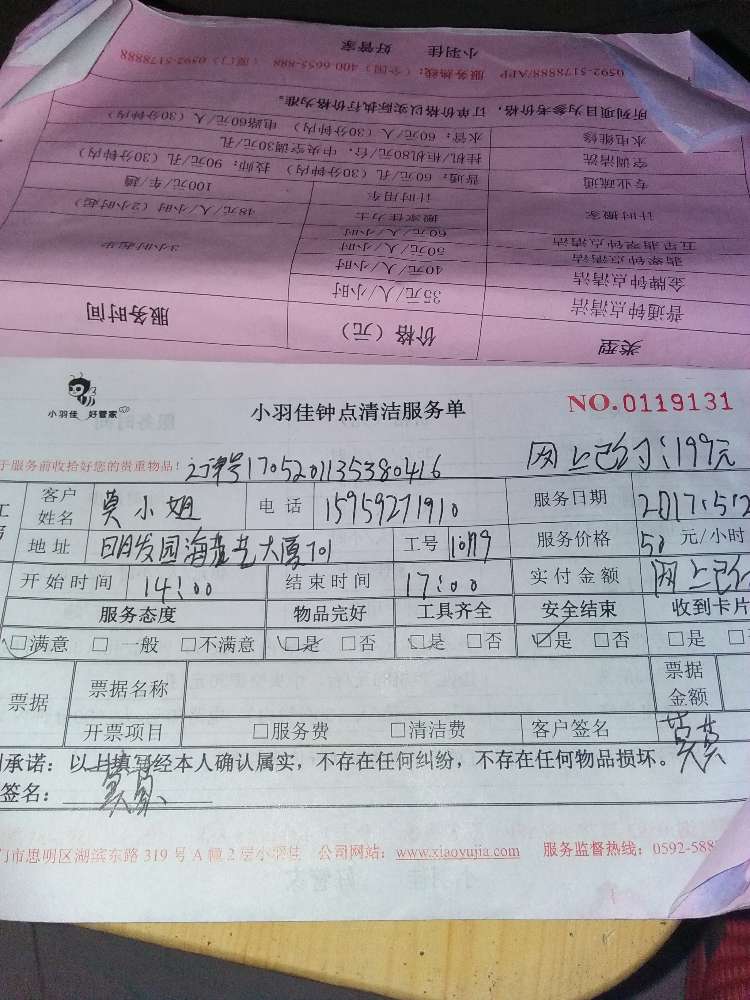 小羽佳 好管家
0592-5178888/APP 服务热线：（全国）400-6655-888 （厦门）0592-5178888
所列项目为参考价格，订单价格以实际执行价格为准。
水电维修 水管：60元/人（30分钟内） 电路60元/人（30分钟内）
空调清洗 挂机/柜机80元/台，中央空调30元/孔
专业疏通 普通：60元/孔（30分钟内） 技师：90元/孔（30分钟内）
计时搬家 计时用车 100元/车/趟
搬家佳力士 48元/人/小时（2小时起）
五星翡翠钟点清洁 60元/人/小时
翡翠钟点清洁 50元/人/小时 3小时起华
金牌钟点清洁 40元/人/小时
普通钟点清洁 35元/人/小时
类型 价格（元） 服务时间
小羽佳 好管家 小羽佳钟点清洁服务单 NO.0119131
于服务前收拾好您的贵重物品！ 订单号1705201135380416 网上已付：199元
客户姓名 莫小姐 电话 15959271910 服务日期 2017.5.2
地址 明发园海 大厦701 工号 服务价格 50 元/小时
开始时间 14：00 结束时间 17：00 实付金额 网上已付
服务态度 物品完好 工具齐全 安全结束 收到卡片
□满意 □一般 □不满意 □是 □否 □是 □否 □是 □否 □是
票据 票据名称 票据金额
开票项目 □服务费 □清洁费 客户签名
承诺：以上填写经本人确认属实，不存在任何纠纷，不存在任何物品损坏。
签名：
门市思明区湖滨东路 319 号 A 幢 2 层小羽佳 公司网站：www.xiaoyujia.com 服务监督热线：0592-588